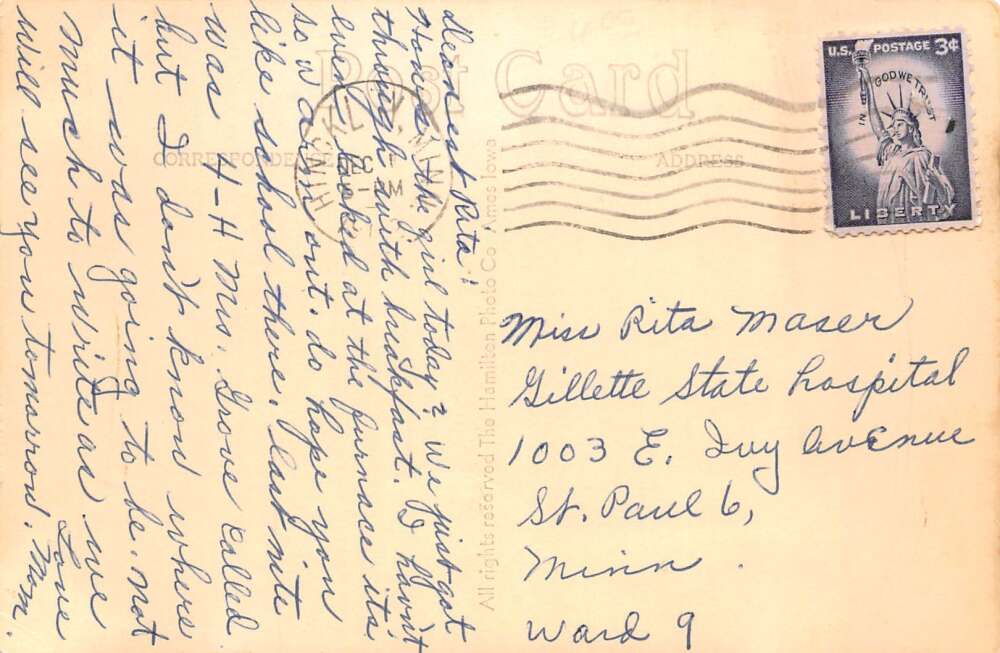 Post Card
CORRESPONDENCE
ADDRESS
Dearest Rita:
How's the girl today? We just got
through with breakfast. I havn't
even looked at the furnace its
so warm out. do hope you
like school there. last nite
was 4-H Mrs. Grove called
but I don't know where
it was going to be. not
much to write as we
will see you tomarrow.
Love
Mom.
All rights reserved The Hamilton Photo Co Ames Iowa
DEC
PM
MINN
U.S. POSTAGE 3¢
IN GOD WE TRUST
LIBERTY
Miss Rita Maser
Gillette State hospital
1003 E. Ivy avenue
St. Paul 6,
Minn.
Ward 9